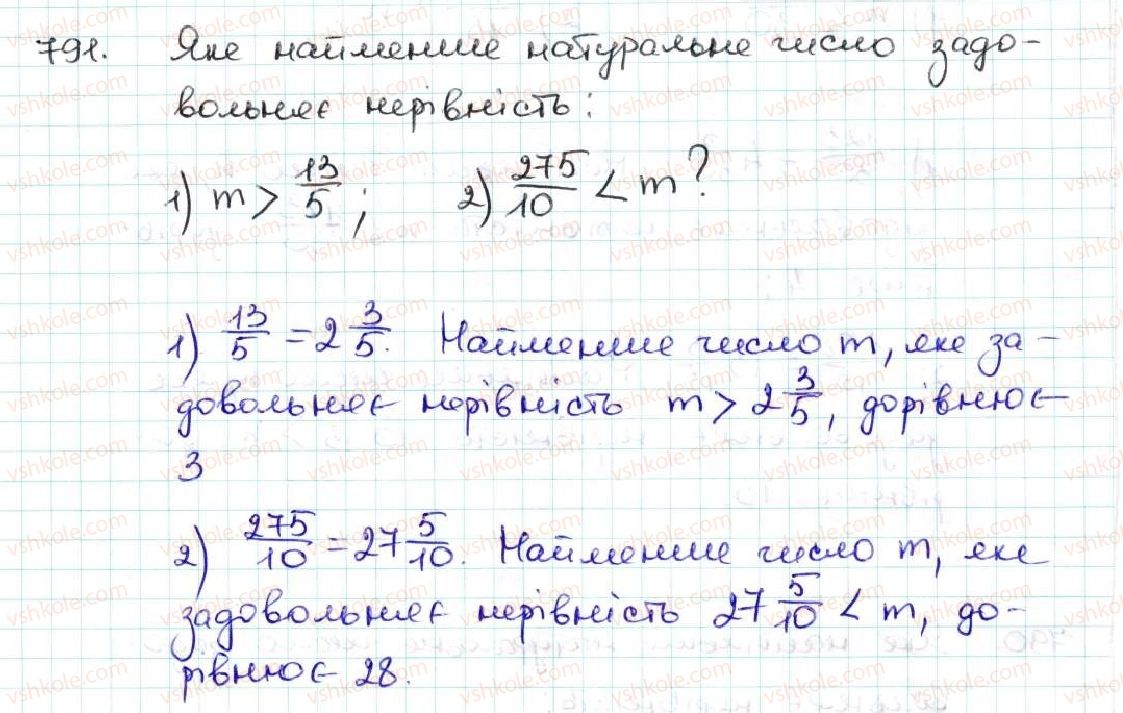 791. Яке найменше натуральне число задо-
вольняє нерівність:
1) m > 13/5; 2) 275/10 < m?
1) 13/5 = 2 3/5. Найменше число m, яке за-
довольняє нерівність m > 2 3/5, дорівнює
3
2) 275/10 = 27 5/10. Найменше число m, яке
задовольняє нерівність 27 5/10 < m, до-
рівнює 28.
vshkole.com